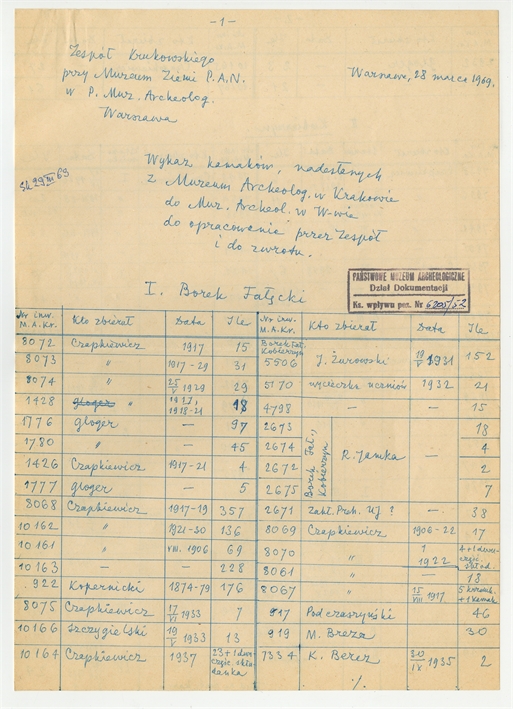 -1-
Zespół Krukowskiego
przy Muzeum Ziemi P.A.N.
w P. Muz. Archeolog.
Warszawa
Warszawa, 28 marca 1969.
29 III 69
Wykaz kamaków, nadesłanych
z Muzeum Archeolog. w Krakowie
do Muz. Archeol. w W-wie
do opracowania przez Zespół
i do zwrotu.
PAŃSTWOWE MUZEUM ARCHEOLOGICZNE
Dział Dokumentacji
Ks. wpływu poz. Nr 6205/52
I. Borek Fałęcki
Nr inw. M.A.Kr. Kto zbierał Data Ile
8072 Czapkiewicz 1917 15
8073 " 1917-29 31
8074 " 25/V 1929 29
1428 gloger " 1917, 1918-21 18
1776 gloger — 97
1780 " — 45
1426 Czapkiewicz 1917-21 4
1777 gloger — 5
8068 Czapkiewicz 1917-19 357
10162 " 1921-30 136
10161 " VIII. 1906 69
10163 — — 228
922 Kopernicki 1874-79 176
8075 Czapkiewicz 17/VI 1933 7
10166 Szczygielski 19/V 1933 13
10164 Czapkiewicz 1937 23+1 dwu-
częśc. skła-
danka
Nr inw. M.A.Kr. Kto zbierał Data Ile
Borek Fał.
Kobierzyn
5506 J. Żurowski 19/V 1931 152
5170 wycieczka uczniów 1932 21
4798 — — 15
Borek Fał., Kobierzyn
2673 R. Jamka — 18
2674 4
2672 2
2675 7
2671 Zakł. Preh. UJ ? — 38
8069 Czapkiewicz 1906-22 17
8070 " 1922 4+1 dwu-
częśc.
8061 " — 18
8067 " 15/VIII 1917 5
+1 kamak
917 Podczaszyński 46
919 M. Breza 30
7334 K. Bercz 30/IX 1935 2
./.